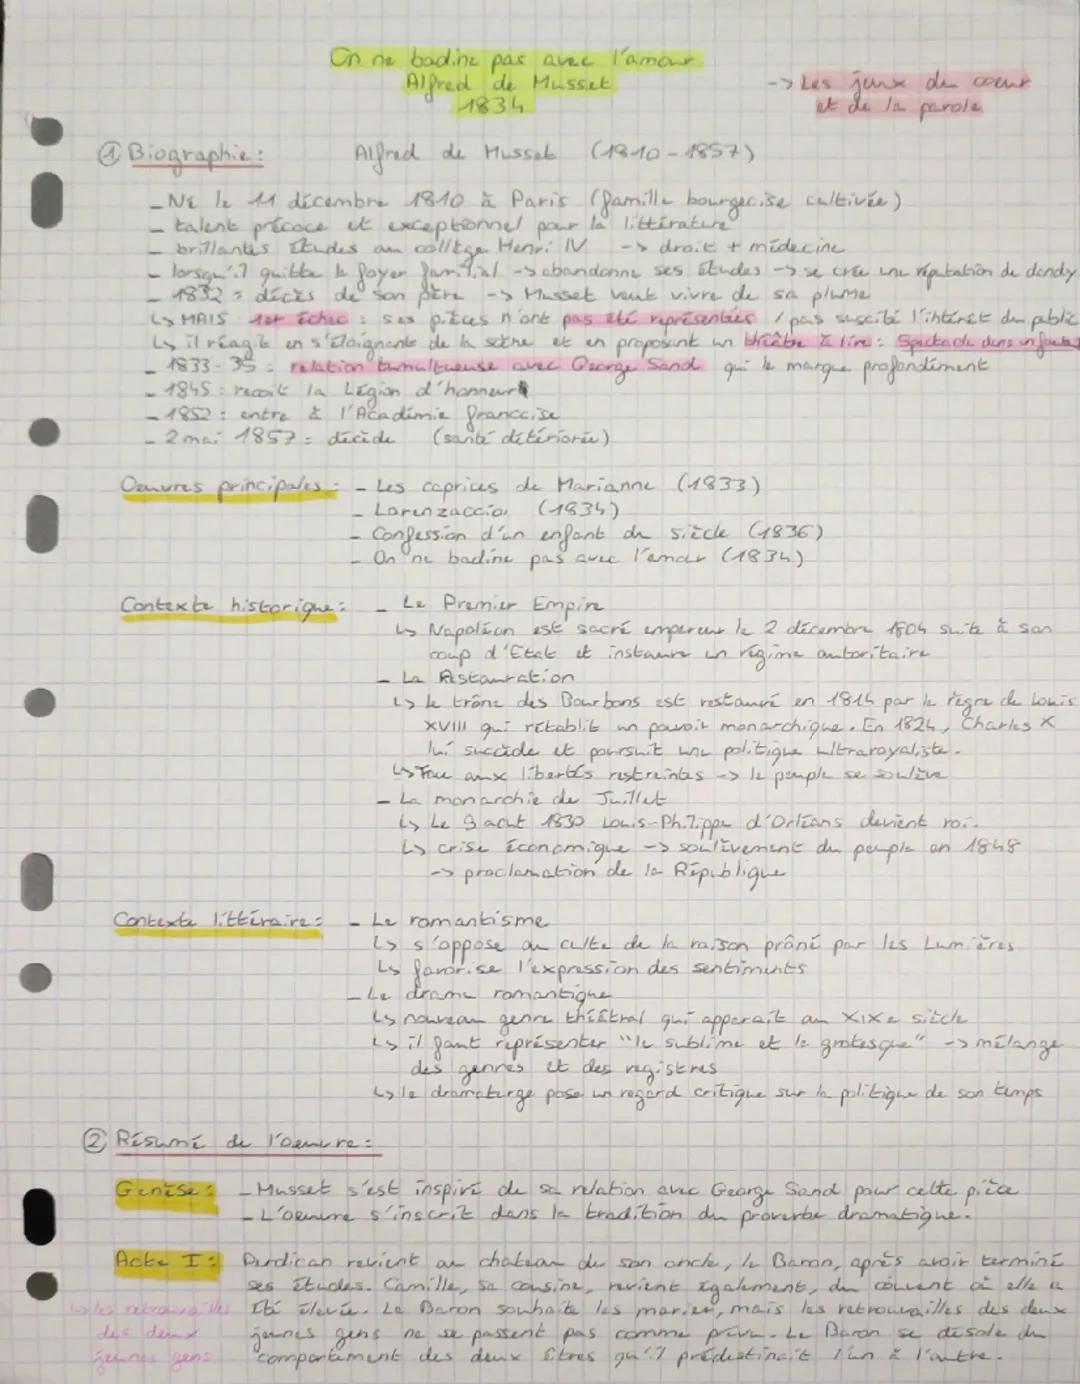 On ne badine pas avec l'amour
Alfred de Musset
1834
-> Les jeux du coeur
et de la parole
① Biographie : Alfred de Musset (1810-1857)
- Né le 11 décembre 1810 à Paris (famille bourgeoise cultivée)
- talent précoce et exceptionnel pour la littérature
- brillantes études au collège Henri IV -> droit + médecine
- lorsqu'il quitte le foyer familial -> abandonne ses études -> se crée une réputation de dandy
- 1832 : décès de son père -> Musset veut vivre de sa plume
↳ MAIS 1er échec : ses pièces n'ont pas été représentées / pas suscité l'intérêt du public
↳ il réagit en s'éloignant de la scène et en proposant un théâtre à lire : Spectacle dans un fauteuil
- 1833-35 : relation tumultueuse avec George Sand qui le marque profondément
- 1845 : reçoit la Légion d'honneur
- 1852 : entre à l'Académie française
- 2 mai 1857 : décède (santé détériorée)
Oeuvres principales : - Les caprices de Marianne (1833)
- Lorenzaccio (1834)
- Confession d'un enfant du siècle (1836)
- On ne badine pas avec l'amour (1834)
Contexte historique : - Le Premier Empire
↳ Napoléon est sacré empereur le 2 décembre 1804 suite à son
coup d'Etat et instaure un régime autoritaire
- La Restauration
↳ le trône des Bourbons est restauré en 1814 par le règne de Louis
XVIII qui rétablit un pouvoir monarchique. En 1824, Charles X
lui succède et poursuit une politique ultraroyaliste.
↳ Face aux libertés restreintes -> le peuple se soulève
- La monarchie de Juillet
↳ Le 9 aout 1830 Louis-Philippe d'Orléans devient roi.
↳ crise économique -> soulèvement du peuple en 1848
-> proclamation de la République
Contexte littéraire : - Le romantisme
↳ s'oppose au culte de la raison prôné par les Lumières
↳ favorise l'expression des sentiments
- Le drame romantique
↳ nouveau genre théâtral qui apparait au XIXe siècle
↳ il faut représenter "le sublime et le grotesque" -> mélange
des genres et des registres
↳ le dramaturge pose un regard critique sur la politique de son temps
② Résumé de l'oeuvre :
Genèse : - Musset s'est inspiré de sa relation avec George Sand pour cette pièce
- L'oeuvre s'inscrit dans la tradition du proverbe dramatique.
Acte I : Perdican revient au chateau de son oncle, le Baron, après avoir terminé
ses études. Camille, sa cousine, revient également, du couvent où elle a
↳ les retrouvailles été élevée. Le Baron souhaite les marier, mais les retrouvailles des deux
des deux jeunes gens ne se passent pas comme prévu. Le Baron se désole du
jeunes gens comportement des deux êtres qu'il prédestinait l'un à l'autre.